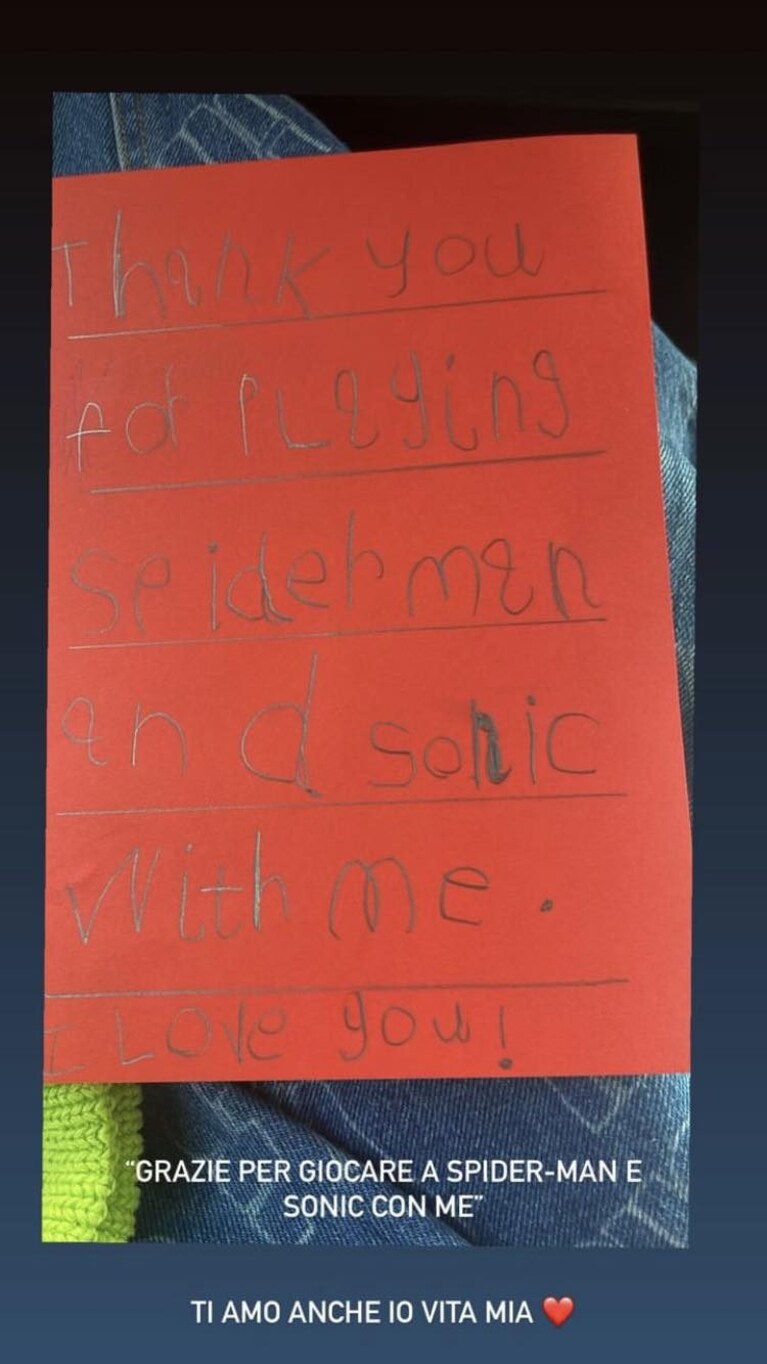 Thank you
for PLaying
spiderman
and sonic
With me.
I Love you!
“GRAZIE PER GIOCARE A SPIDER-MAN E
SONIC CON ME”
TI AMO ANCHE IO VITA MIA ❤️